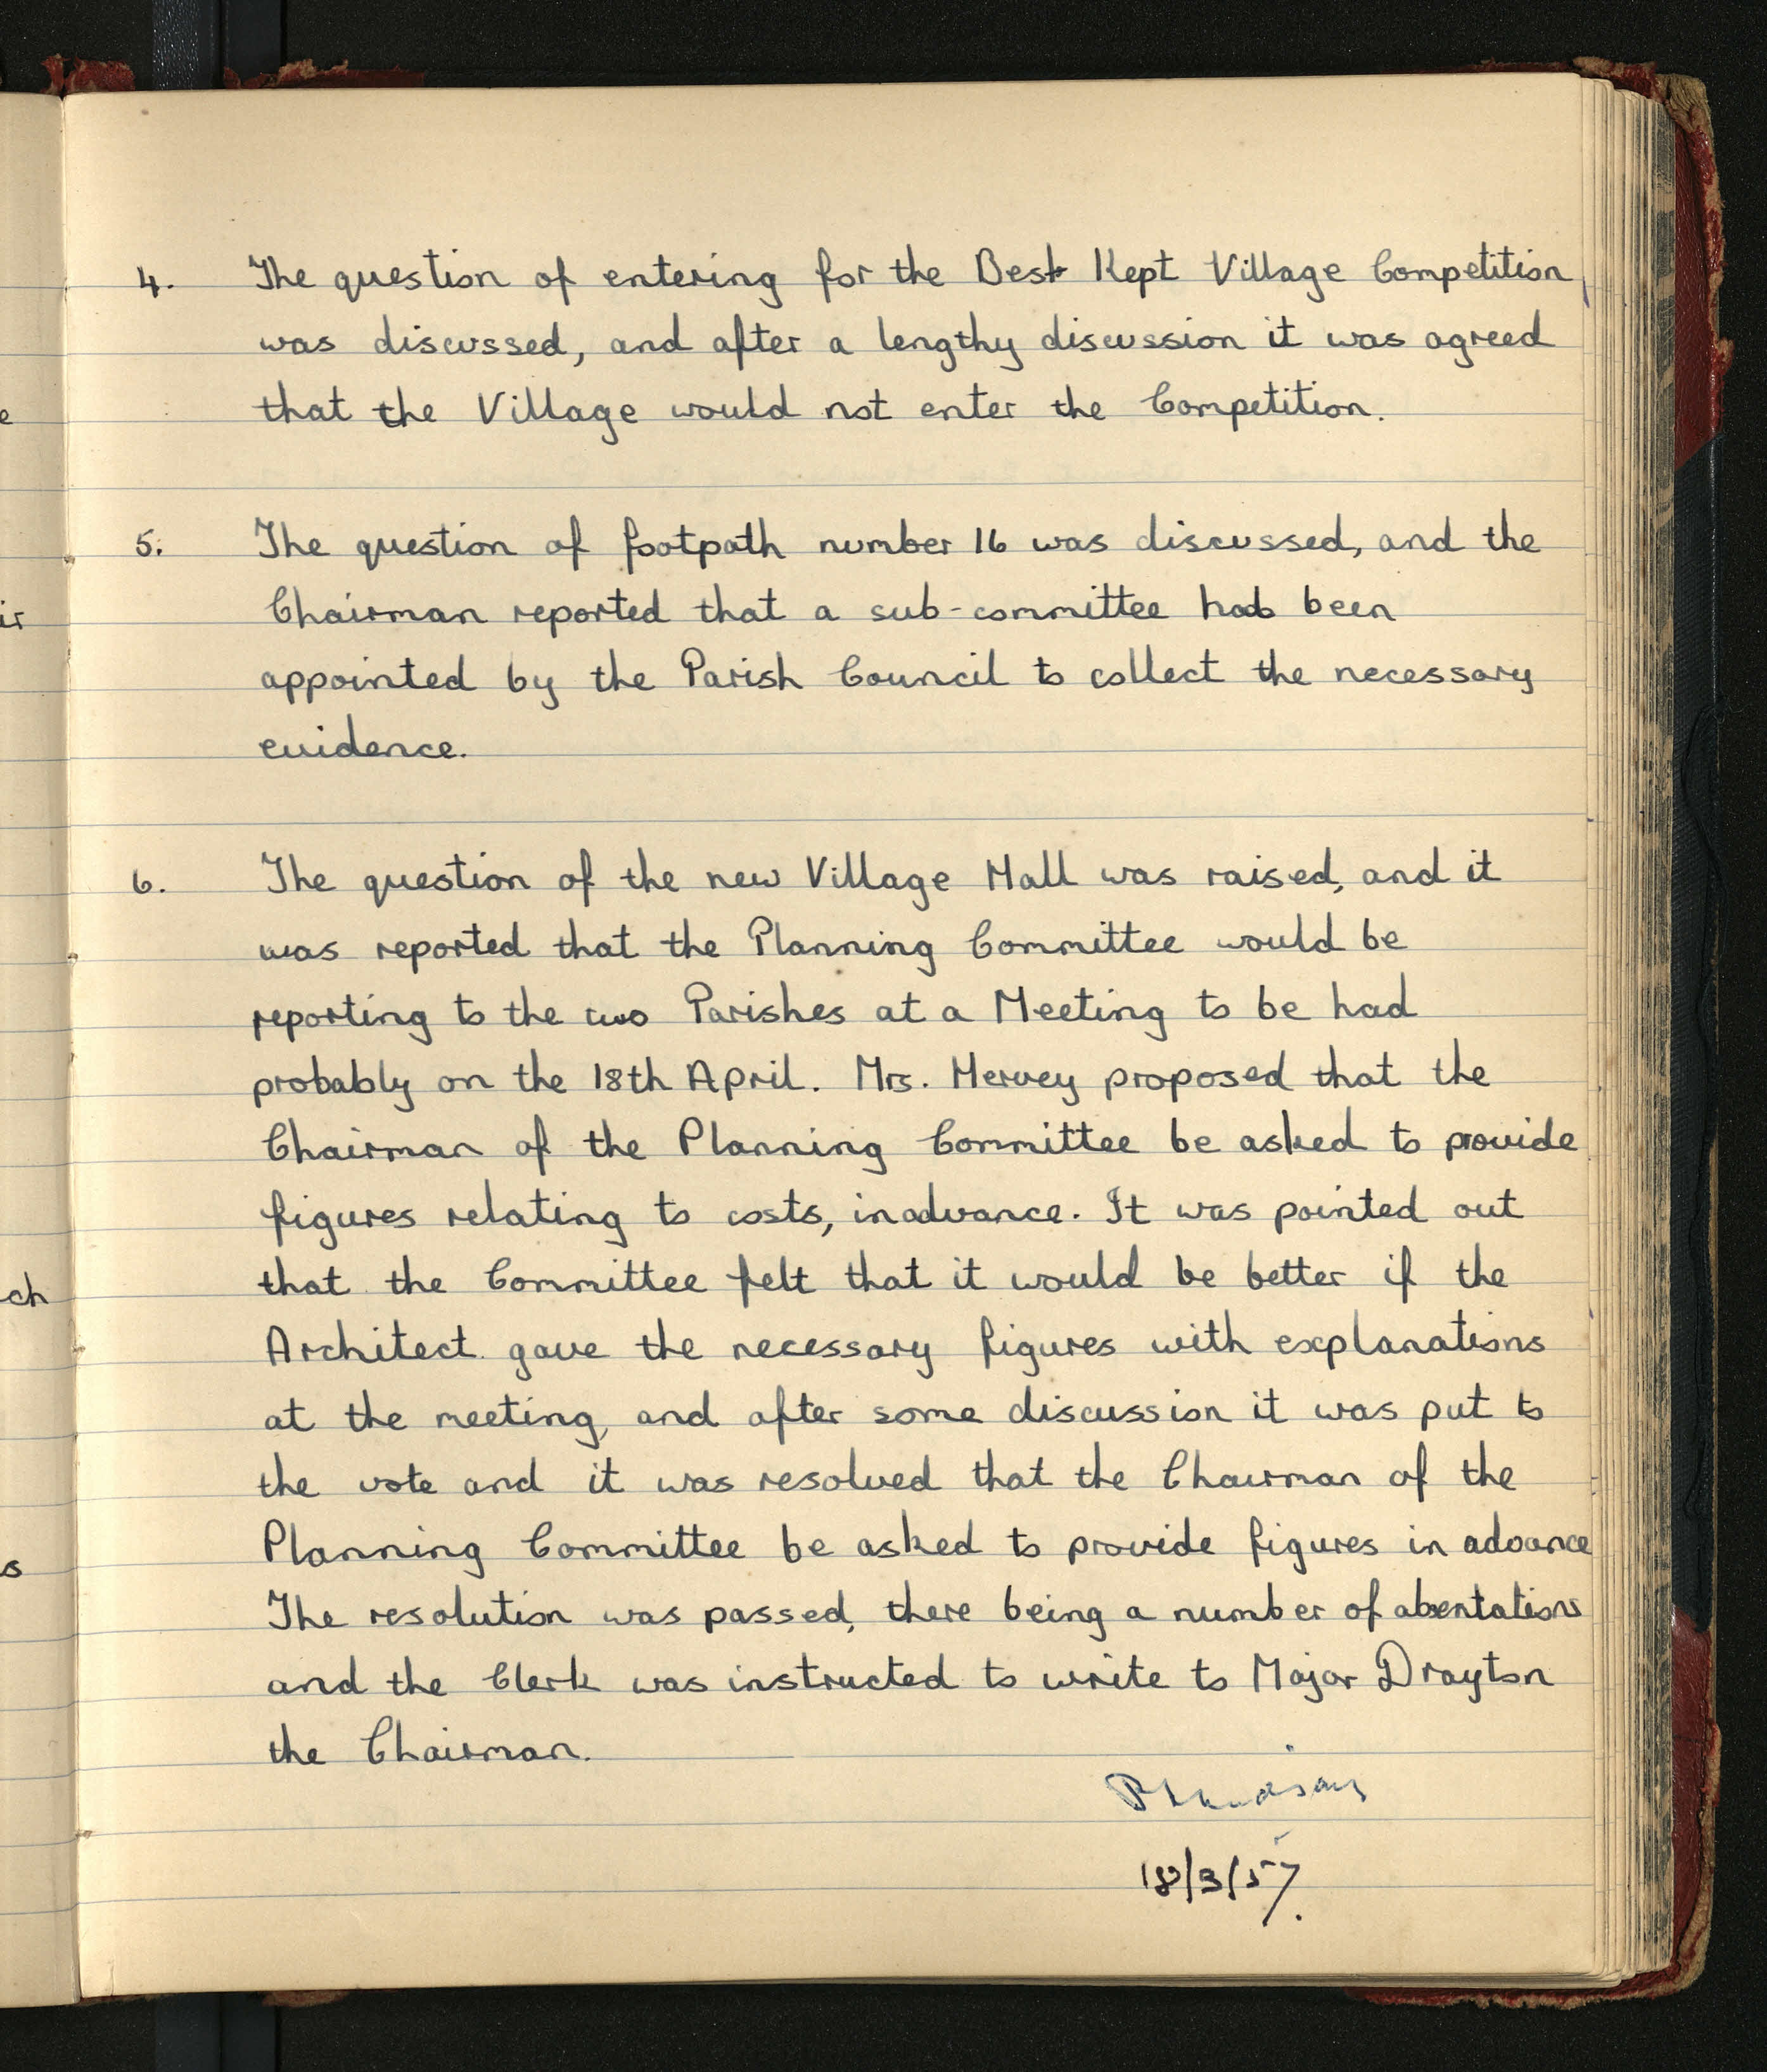 e
ir
ch
s
4. The question of entering for the Best Kept Village Competition
was discussed, and after a lengthy discussion it was agreed
that the Village would not enter the Competition.
5. The question of footpath number 16 was discussed, and the
Chairman reported that a sub-committee had been
appointed by the Parish Council to collect the necessary
evidence.
6. The question of the new Village Hall was raised, and it
was reported that the Planning Committee would be
reporting to the two Parishes at a Meeting to be had
probably on the 18th April. Mrs. Hervey proposed that the
Chairman of the Planning Committee be asked to provide
figures relating to costs, in advance. It was pointed out
that the Committee felt that it would be better if the
Architect gave the necessary figures with explanations
at the meeting, and after some discussion it was put to
the vote and it was resolved that the Chairman of the
Planning Committee be asked to provide figures in advance
The resolution was passed, there being a number of absentations
and the Clerk was instructed to write to Major Drayton
the Chairman.
18/3/57.